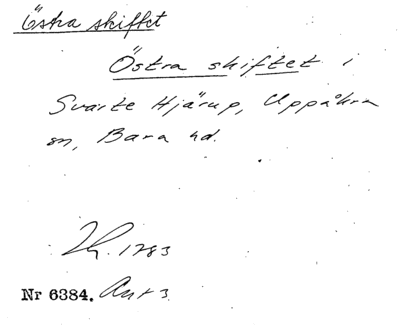 Östra skiftet
Östra skiftet i
Svarte Hjärup, Uppåkra
sn, Bara hd.
1783
Nr 6384. Akt 3